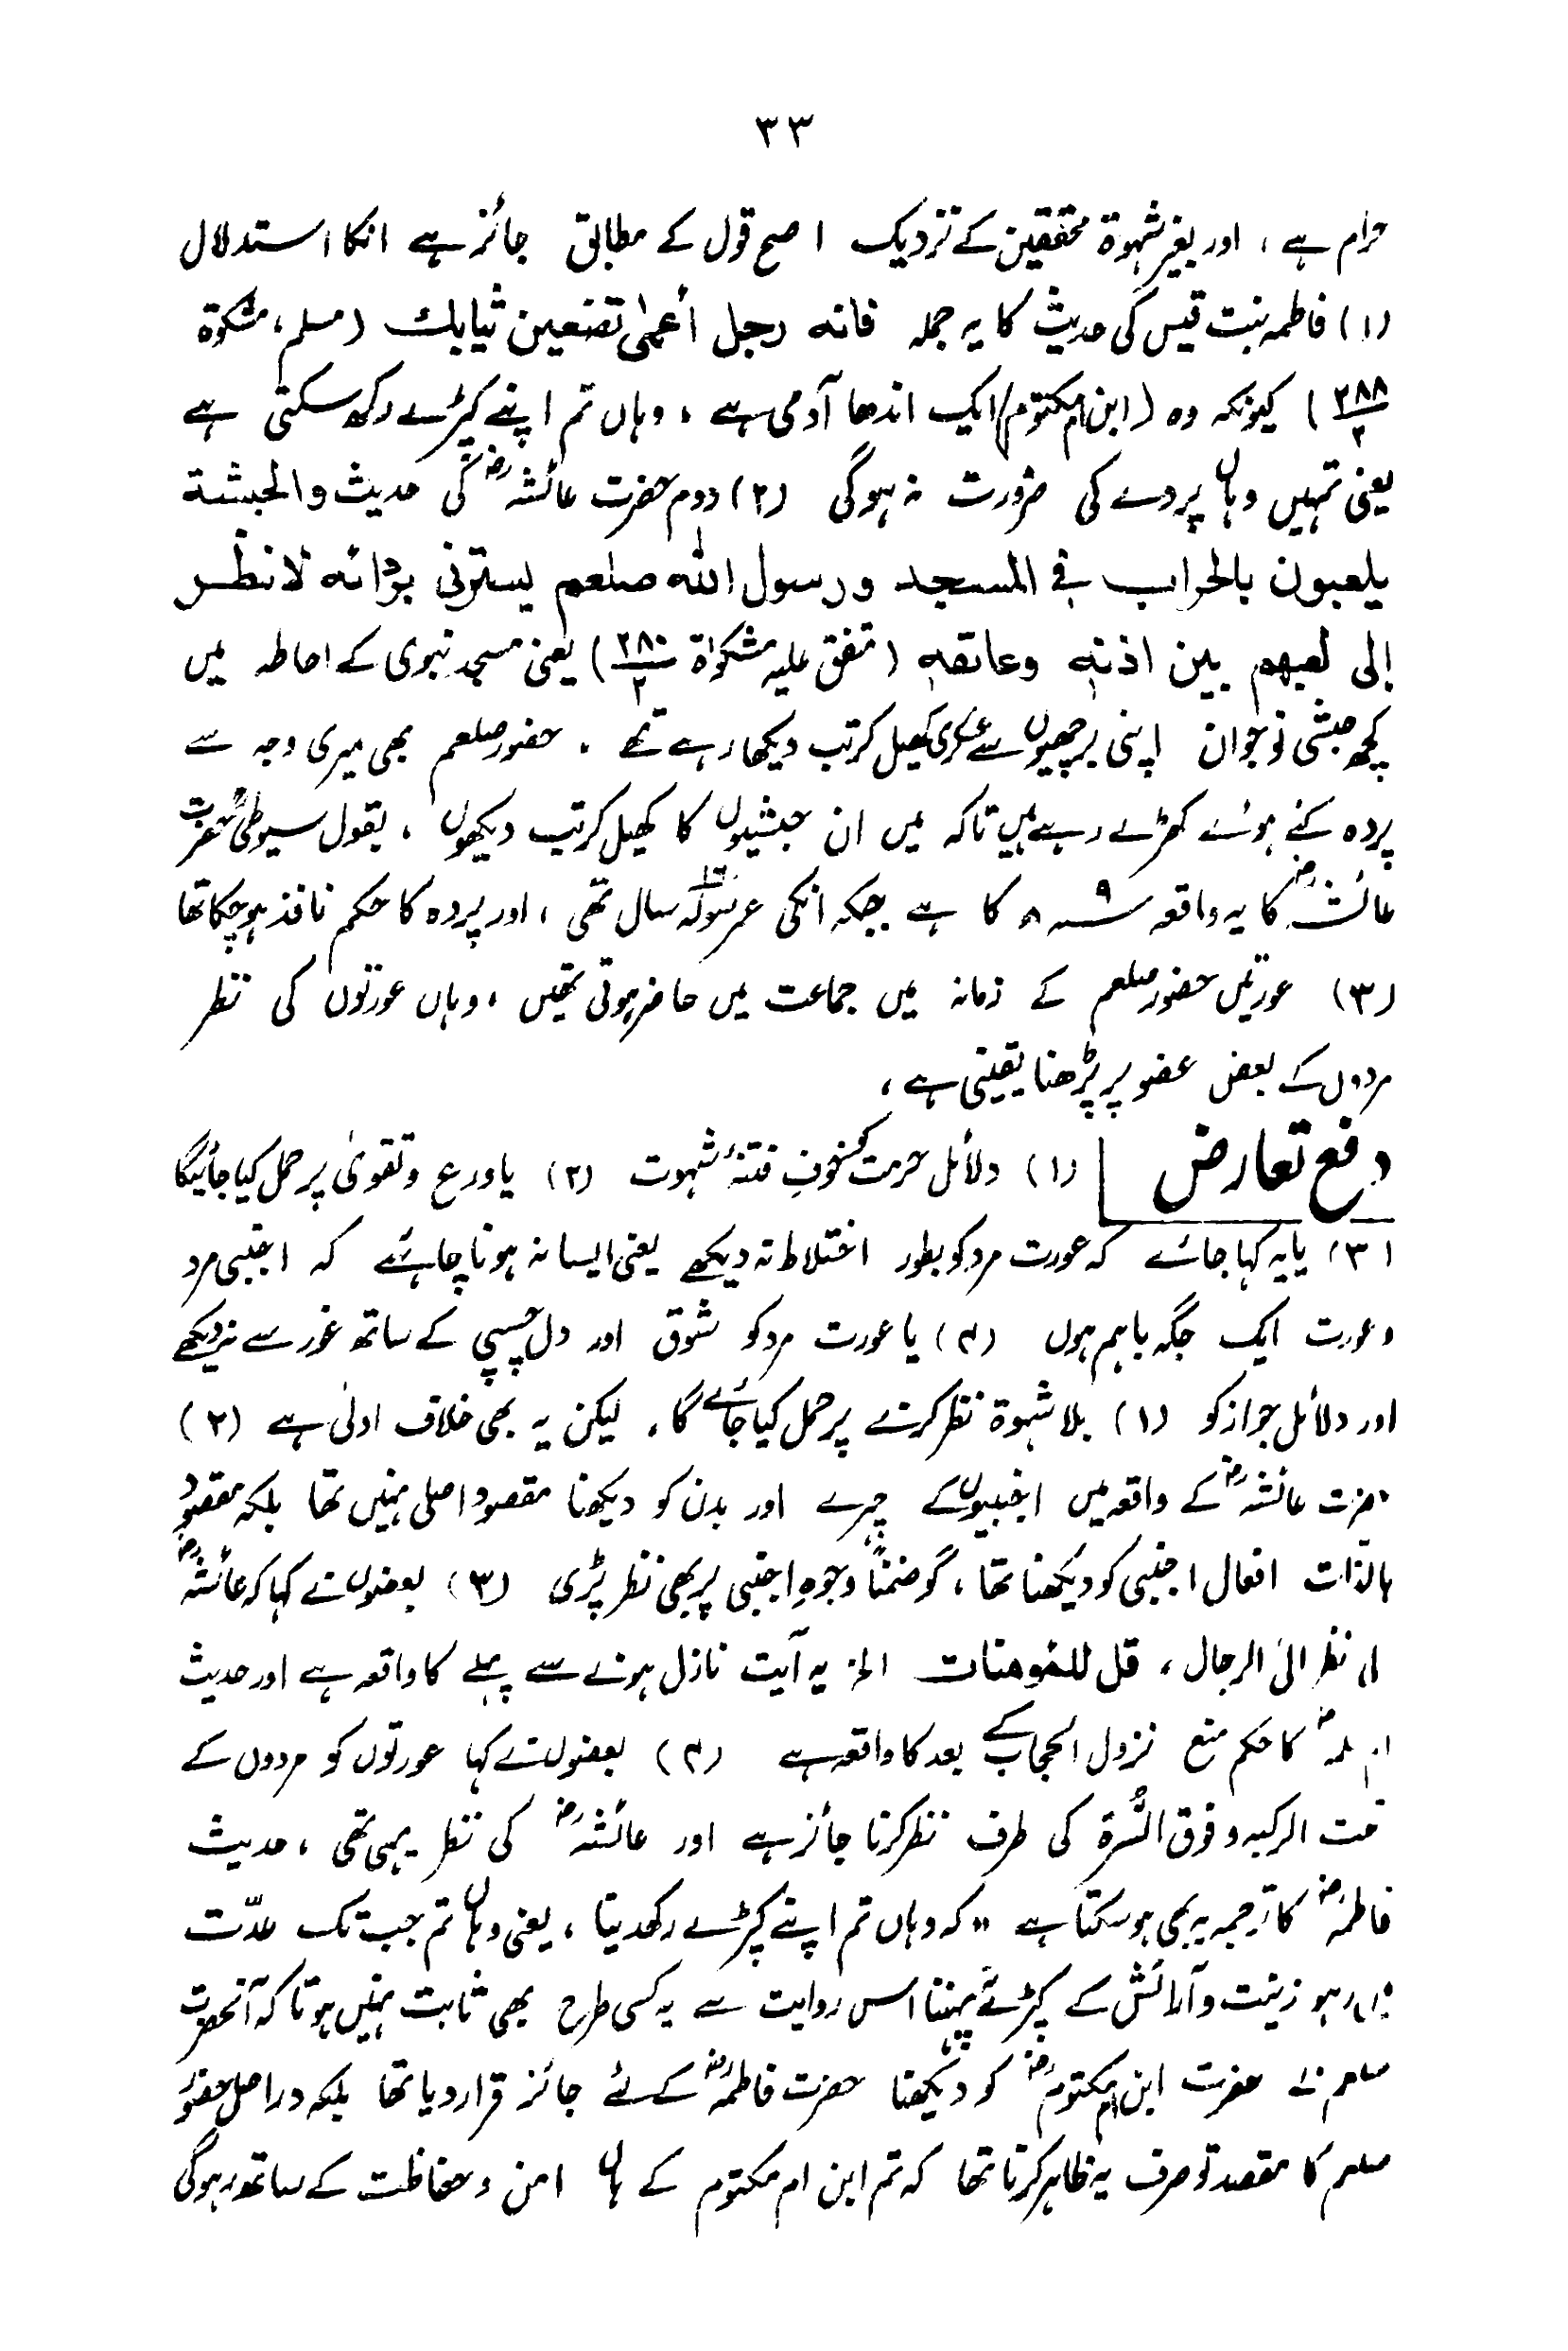 ۳۳
حرام ہے ، اور بغیر شہوۃ محققین کے نزدیک اصح قول کے مطابق جائز ہے انکا استدلال
(۱) فاطمہ بنت قیس کی حدیث کا یہ جملہ فانه رجل أعمىٰ تضعين ثيابك (مسلم، مشکوۃ
۲۸۸/۲) کیونکہ وہ (ابن ام مکتوم) ایک اندھا آدمی ہے ، وہاں تم اپنے کپڑے رکھ سکتی ہے
یعنی تمہیں وہاں پردے کی ضرورت نہ ہوگی (۲) دوم حضرت عائشہؓ کی حدیث والحبشة
يلعبون بالحراب في المسجد ورسول الله صلعم يسترني بردائه لانظر
إلى لعبهم بين اذنه وعاتقه (متفق علیہ مشکوٰۃ ۲۸۰/۲) یعنی مسجد نبوی کے احاطہ میں
کچھ حبشی نوجوان اپنی برچھیوں سے عسکری کھیل کرتب دیکھا رہے تھے ۔ حضور صلعم بھی میری وجہ سے
پردہ کئے ہوئے کھڑے رہے ہیں تاکہ میں ان حبشیوں کا کھیل کرتب دیکھوں ، بقول سیوطیؒ حضرت
عائشہؓ کا یہ واقعہ سنہ ۹ھ کا ہے جبکہ انکی عمر سولہ سال تھی ، اور پردہ کا حکم نافذ ہوچکا تھا
(۳) عورتیں حضور صلعم کے زمانہ میں جماعت میں حاضر ہوتی تھیں ، وہاں عورتوں کی نظر
مردوں کے بعض عضو پر پڑھنا یقینی ہے ،
دفع تعارض (۱) دلائل حرمت کو خوفِ فتنۂ شہوت (۲) یا ورع و تقویٰ پر حمل کیا جائیگا
(۳) یا یہ کہا جائے کہ عورت مرد کو بطور اختلاط نہ دیکھے یعنی ایسا نہ ہونا چاہئے کہ اجنبی مرد
و عورت ایک جگہ باہم ہوں (۴) یا عورت مرد کو شوق اور دل چسپی کے ساتھ غور سے نہ دیکھے
اور دلائل جواز کو (۱) بلا شہوۃ نظر کرنے پر حمل کیا جائے گا ، لیکن یہ بھی خلاف اولیٰ ہے (۲)
حضرت عائشہؓ کے واقعہ میں اجنبیوں کے چہرے اور بدن کو دیکھنا مقصود اصلی نہیں تھا بلکہ مقصود
بالذات افعال اجنبی کو دیکھنا تھا ، گو ضمناً وجوہِ اجنبی پر بھی نظر پڑی (۳) بعضوں نے کہا کہ عائشہؓ
کی نظر الی الرجال ، قل للمؤمنات الخ یہ آیت نازل ہونے سے پہلے کا واقعہ ہے اور حدیث
ام سلمہؓ کا حکم منع نزول الحجاب کے بعد کا واقعہ ہے (۴) بعضوں نے کہا عورتوں کو مردوں کے
تحت الرکبہ و فوق السُّرۃ کی طرف نظر کرنا جائز ہے اور عائشہؓ کی نظر یہی تھی ، حدیث
فاطمہؓ کا ترجمہ یہ بھی ہوسکتا ہے " کہ وہاں تم اپنے کپڑے رکھدینا ، یعنی وہاں تم جب تک عدّت
میں رہو زینت و آرائش کے کپڑے نہ پہننا اس روایت سے یہ کسی طرح بھی ثابت نہیں ہوتا کہ آنحضرت
صلعم نے حضرت ابن ام مکتومؓ کو دیکھنا حضرت فاطمہؓ کے لئے جائز قرار دیا تھا بلکہ دراصل حضور
صلعم کا مقصد تو صرف یہ ظاہر کرنا تھا کہ تم ابن ام مکتوم کے ہاں امن و حفاظت کے ساتھ رہوگی